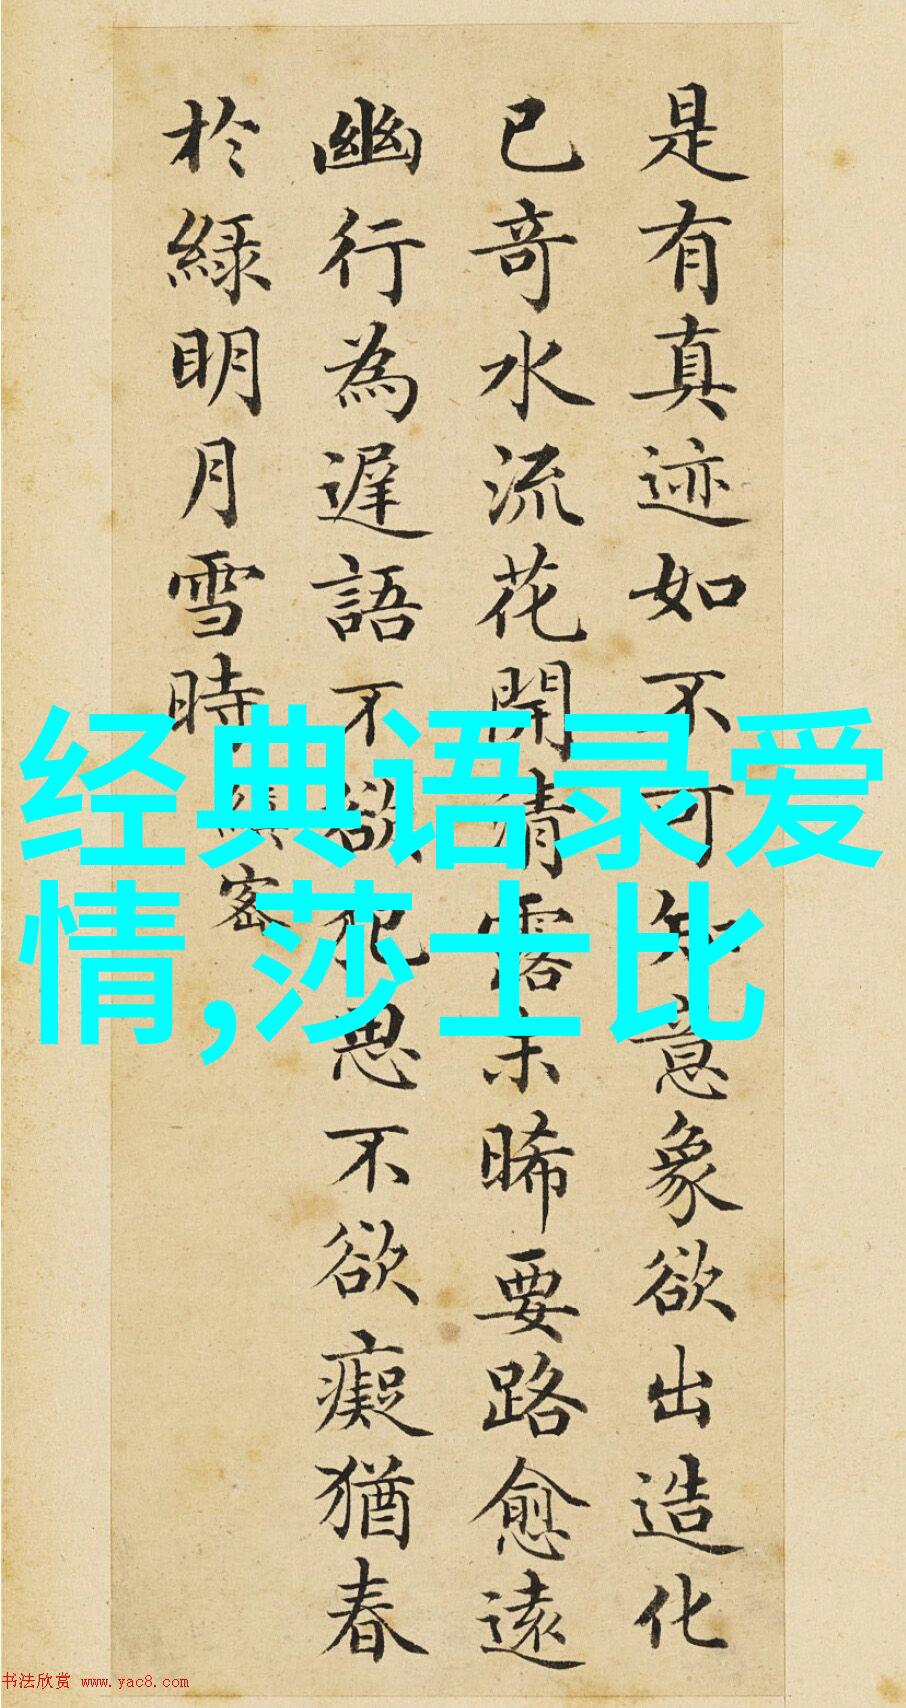 是有真迹如不可知意象欲出造化
已奇水流花開清露未晞要路愈遠
幽行為遲語不欲犯思不欲癡猶春
於綠明月雪時
密
经典语录爱
情,莎士比
书法欣赏 www.yac8.com